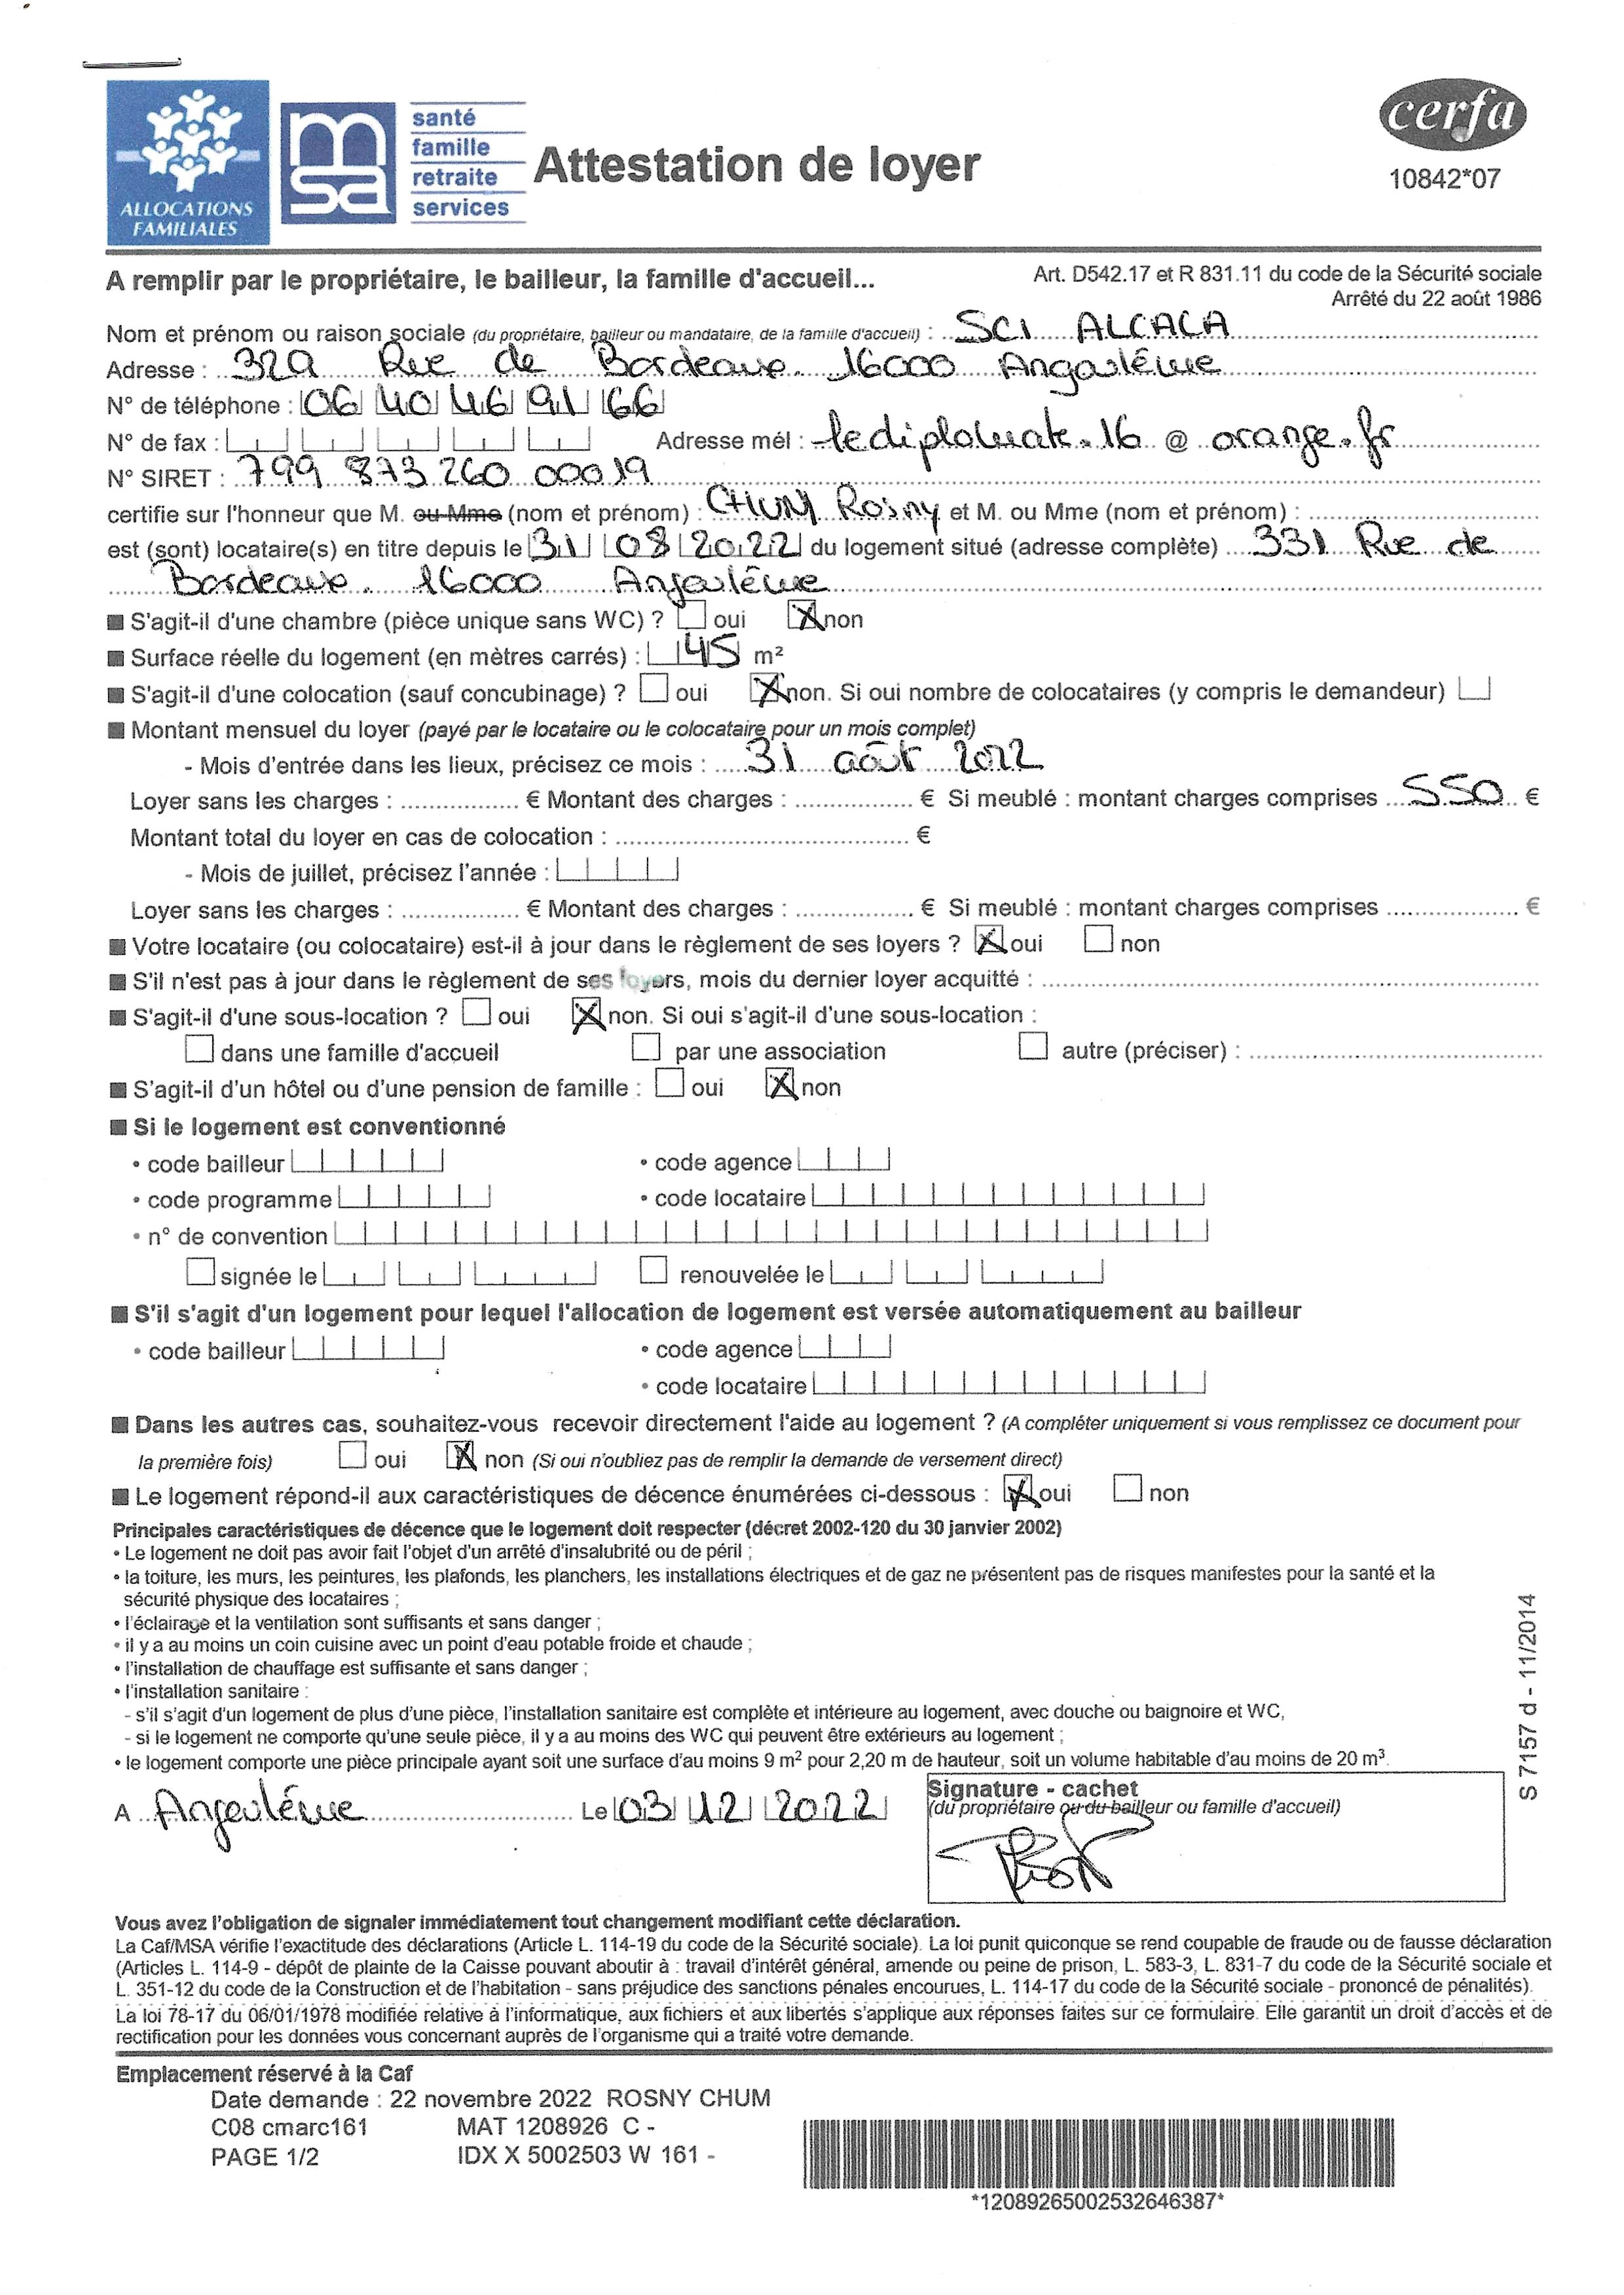 ALLOCATIONS
FAMILIALES
msa
santé
famille
retraite
services
Attestation de loyer
cerfa
10842*07
A remplir par le propriétaire, le bailleur, la famille d'accueil...
Art. D542.17 et R 831.11 du code de la Sécurité sociale
Arrêté du 22 août 1986
Nom et prénom ou raison sociale (du propriétaire, bailleur ou mandataire, de la famille d'accueil) : SCI ALCALA
Adresse : 329 Rue de Bordeaux. 16000 Angoulême
N° de téléphone : 06 40 46 91 66
N° de fax :
Adresse mél : lediplomate.16 @ orange.fr
N° SIRET : 799 873 260 00019
certifie sur l'honneur que M. ou Mme (nom et prénom) : CHUM Rosny et M. ou Mme (nom et prénom) :
est (sont) locataire(s) en titre depuis le 31 08 2022 du logement situé (adresse complète) 331 Rue de
Bordeaux. 16000 Angoulême
S'agit-il d'une chambre (pièce unique sans WC) ? oui X non
Surface réelle du logement (en mètres carrés) : 45 m²
S'agit-il d'une colocation (sauf concubinage) ? oui X non. Si oui nombre de colocataires (y compris le demandeur)
Montant mensuel du loyer (payé par le locataire ou le colocataire pour un mois complet)
- Mois d'entrée dans les lieux, précisez ce mois : 31 août 2022
Loyer sans les charges : € Montant des charges : € Si meublé : montant charges comprises 550 €
Montant total du loyer en cas de colocation : €
- Mois de juillet, précisez l'année :
Loyer sans les charges : € Montant des charges : € Si meublé : montant charges comprises €
Votre locataire (ou colocataire) est-il à jour dans le règlement de ses loyers ? X oui non
S'il n'est pas à jour dans le règlement de ses loyers, mois du dernier loyer acquitté :
S'agit-il d'une sous-location ? oui X non. Si oui s'agit-il d'une sous-location :
dans une famille d'accueil par une association autre (préciser) :
S'agit-il d'un hôtel ou d'une pension de famille : oui X non
Si le logement est conventionné
• code bailleur • code agence
• code programme • code locataire
• n° de convention
signée le renouvelée le
S'il s'agit d'un logement pour lequel l'allocation de logement est versée automatiquement au bailleur
• code bailleur • code agence
• code locataire
Dans les autres cas, souhaitez-vous recevoir directement l'aide au logement ? (A compléter uniquement si vous remplissez ce document pour
la première fois) oui X non (Si oui n'oubliez pas de remplir la demande de versement direct)
Le logement répond-il aux caractéristiques de décence énumérées ci-dessous : X oui non
Principales caractéristiques de décence que le logement doit respecter (décret 2002-120 du 30 janvier 2002)
• Le logement ne doit pas avoir fait l'objet d'un arrêté d'insalubrité ou de péril ;
• la toiture, les murs, les peintures, les plafonds, les planchers, les installations électriques et de gaz ne présentent pas de risques manifestes pour la santé et la
sécurité physique des locataires ;
• l'éclairage et la ventilation sont suffisants et sans danger ;
• il y a au moins un coin cuisine avec un point d'eau potable froide et chaude ;
• l'installation de chauffage est suffisante et sans danger ;
• l'installation sanitaire :
- s'il s'agit d'un logement de plus d'une pièce, l'installation sanitaire est complète et intérieure au logement, avec douche ou baignoire et WC,
- si le logement ne comporte qu'une seule pièce, il y a au moins des WC qui peuvent être extérieurs au logement ;
• le logement comporte une pièce principale ayant soit une surface d'au moins 9 m² pour 2,20 m de hauteur, soit un volume habitable d'au moins de 20 m³.
S 7157 d - 11/2014
A Angoulême Le 03 12 2022
Signature - cachet
(du propriétaire ou du bailleur ou famille d'accueil)
Vous avez l'obligation de signaler immédiatement tout changement modifiant cette déclaration.
La Caf/MSA vérifie l'exactitude des déclarations (Article L. 114-19 du code de la Sécurité sociale). La loi punit quiconque se rend coupable de fraude ou de fausse déclaration
(Articles L. 114-9 - dépôt de plainte de la Caisse pouvant aboutir à : travail d'intérêt général, amende ou peine de prison, L. 583-3, L. 831-7 du code de la Sécurité sociale et
L. 351-12 du code de la Construction et de l'habitation - sans préjudice des sanctions pénales encourues, L. 114-17 du code de la Sécurité sociale - prononcé de pénalités).
La loi 78-17 du 06/01/1978 modifiée relative à l'informatique, aux fichiers et aux libertés s'applique aux réponses faites sur ce formulaire. Elle garantit un droit d'accès et de
rectification pour les données vous concernant auprès de l'organisme qui a traité votre demande.
Emplacement réservé à la Caf
Date demande : 22 novembre 2022 ROSNY CHUM
C08 cmarc161 MAT 1208926 C -
PAGE 1/2 IDX X 5002503 W 161 -
*12089265002532646387*